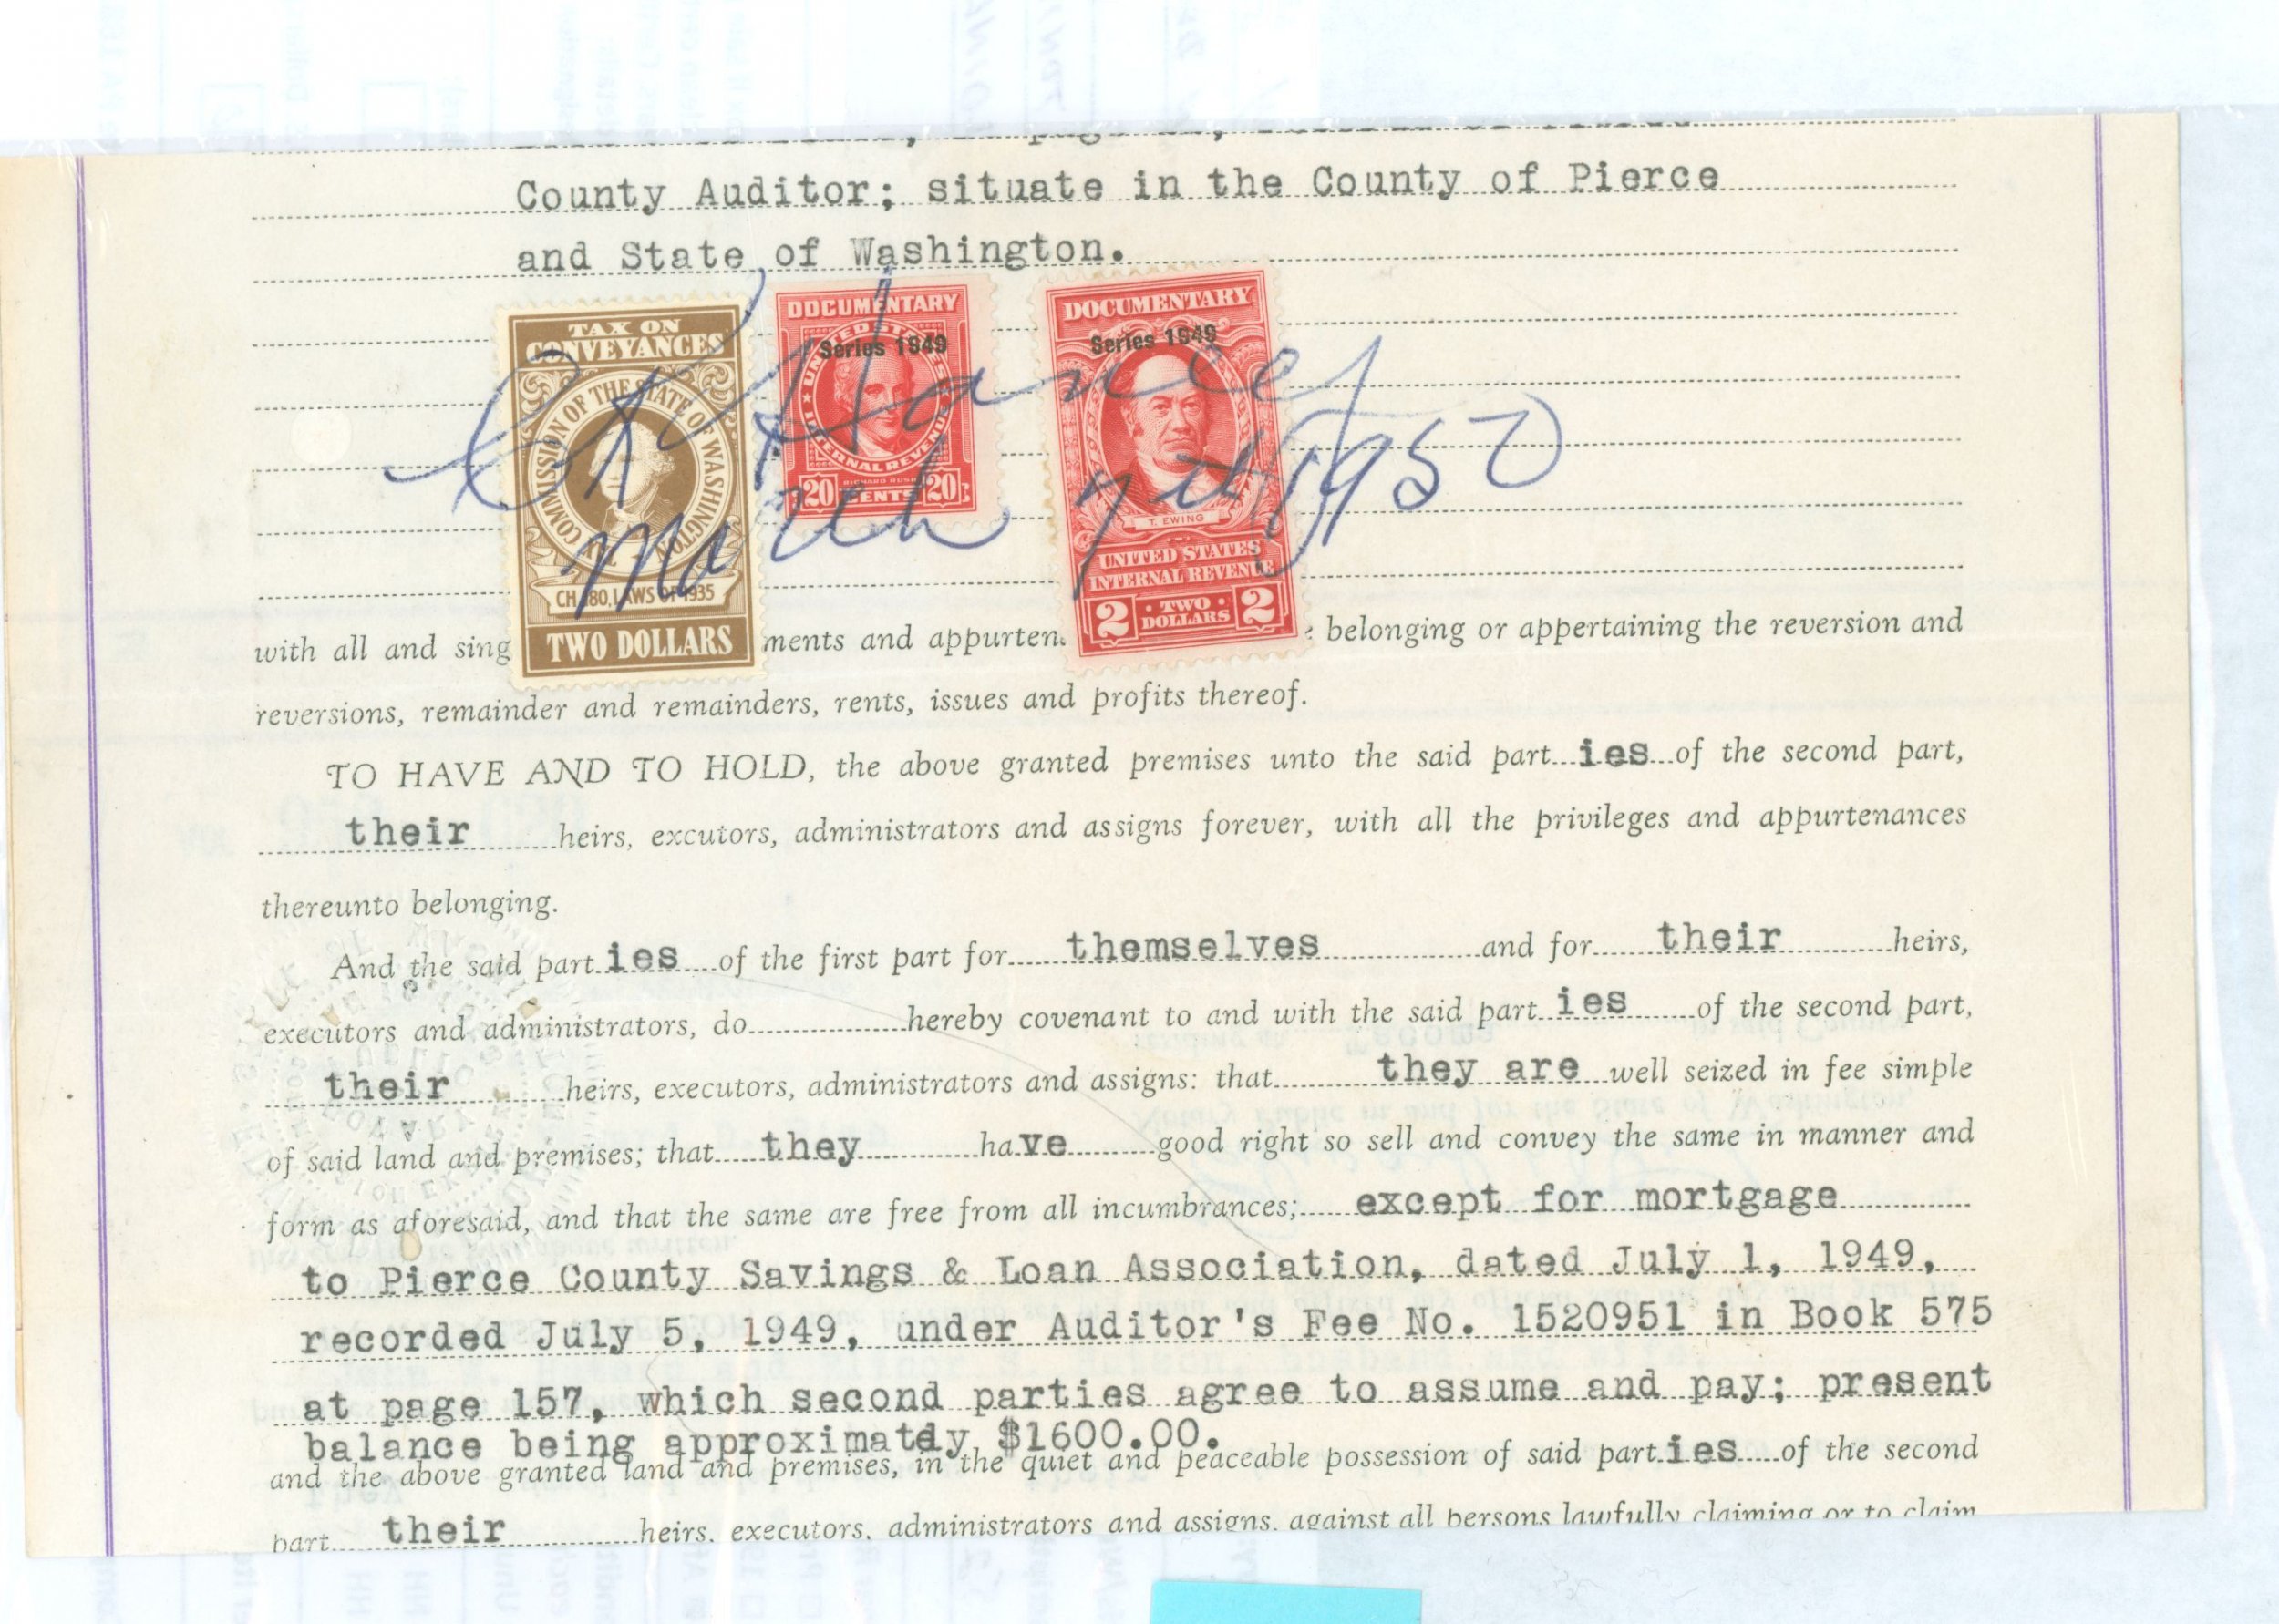 County Auditor; situate in the County of Pierce
and State of Washington.
TAX ON
CONVEYANCES
COMMISSION OF THE STATE OF WASHINGTON
CH. 180, LAWS OF 1935
TWO DOLLARS
DOCUMENTARY
Series 1949
UNITED STATES
INTERNAL REVENUE
RICHARD RUSH
20 CENTS 20
DOCUMENTARY
Series 1949
T. EWING
UNITED STATES
INTERNAL REVENUE
2 TWO DOLLARS 2
March 7th 1950
with all and sing ments and appurten belonging or appertaining the reversion and
reversions, remainder and remainders, rents, issues and profits thereof.
TO HAVE AND TO HOLD, the above granted premises unto the said part ies of the second part,
their heirs, excutors, administrators and assigns forever, with all the privileges and appurtenances
thereunto belonging.
And the said part ies of the first part for themselves and for their heirs,
executors and administrators, do hereby covenant to and with the said part ies of the second part,
their heirs, executors, administrators and assigns: that they are well seized in fee simple
of said land and premises; that they have good right so sell and convey the same in manner and
form as aforesaid, and that the same are free from all incumbrances; except for mortgage
to Pierce County Savings & Loan Association, dated July 1, 1949,
recorded July 5, 1949, under Auditor's Fee No. 1520951 in Book 575
at page 157, which second parties agree to assume and pay; present
balance being approximately $1600.00.
and the above granted land and premises, in the quiet and peaceable possession of said part ies of the second
part their heirs, executors, administrators and assigns, against all persons lawfully claiming or to claim